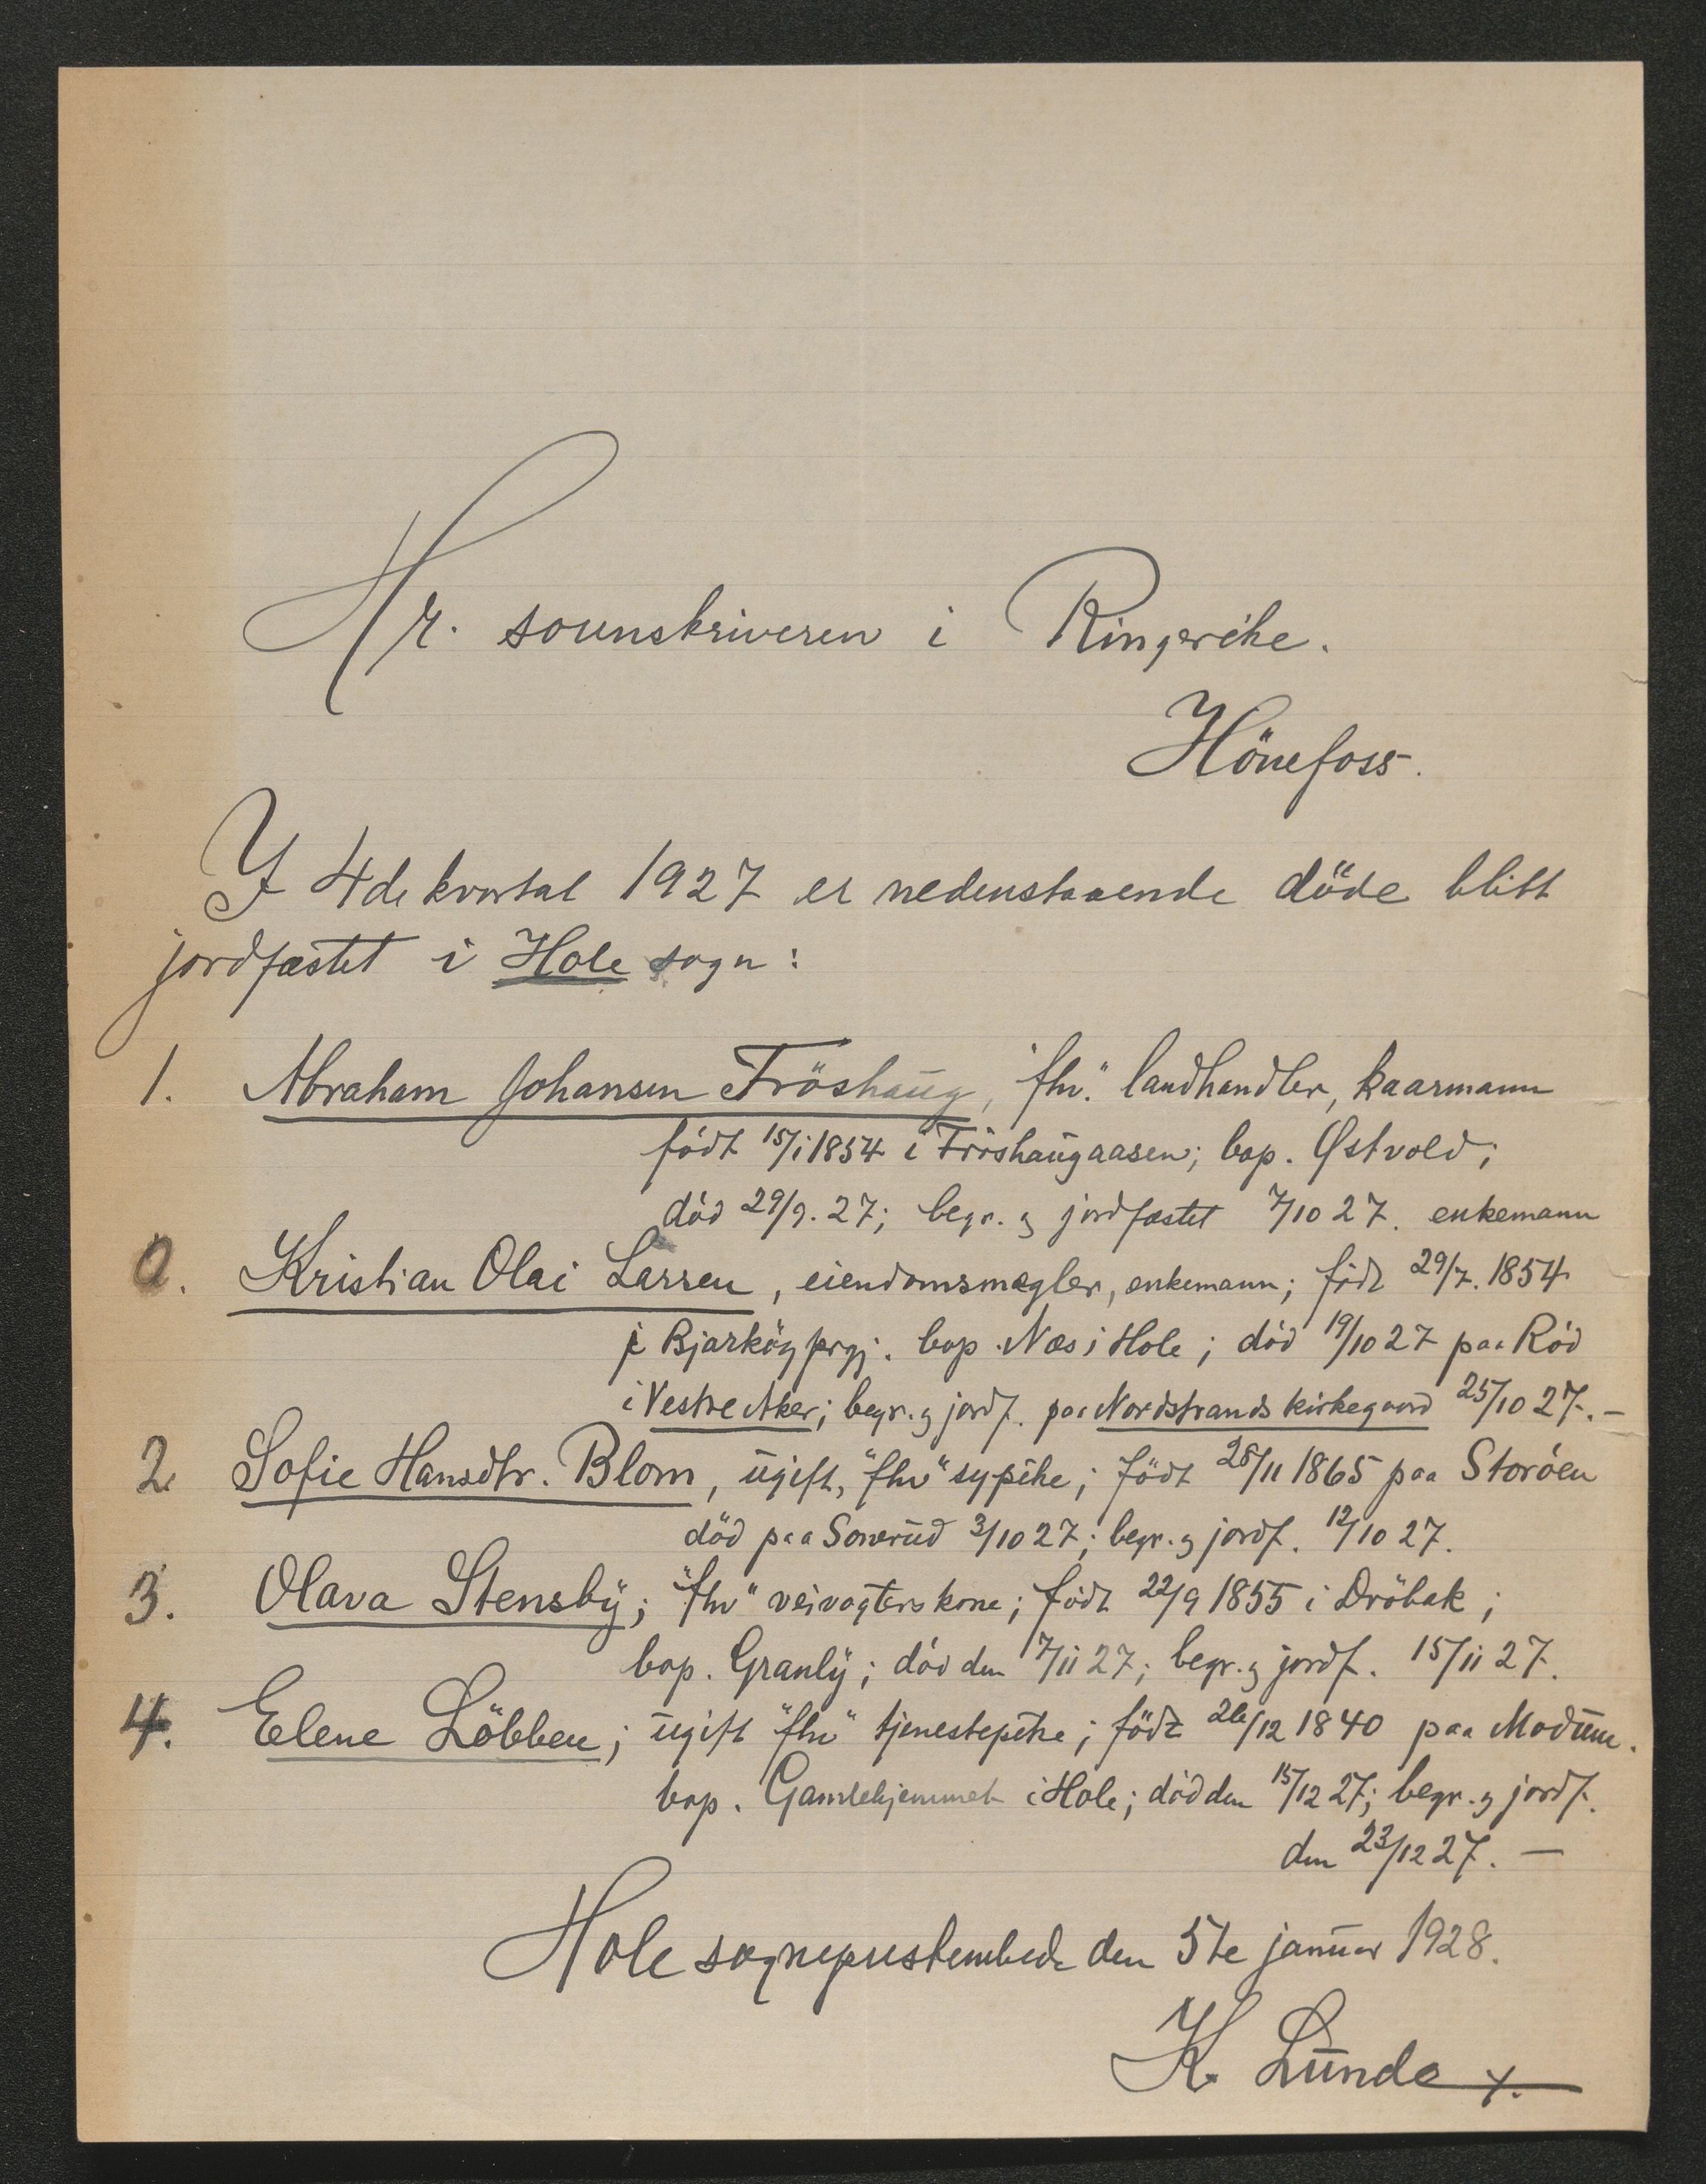 Hr. sorenskriveren i Ringerike.
Hönefoss.
I 4de kvartal 1927 er nedenstaaende döde blitt
jordfæstet i Hole sogn:
1. Abraham Johansen Fröshaug, "fhv." landhandler, kaarmann
født 15/1 1854 i Fröshaugaasen; bop. Østvold;
död 29/9. 27; begr. og jordfæstet 7/10 27. enkemann
0. Kristian Olai Larsen, eiendomsmægler, enkemann; född 29/7. 1854
i Bjarköy prgj. bop. Næs i Hole; död 19/10 27 paa Röd
i Vestre Aker; begr. og jordf. paa Nordstrands kirkegaard 25/10 27. —
2 Sofie Hansdtr. Blom, ugift, "fhv" sypike; födt 28/11 1865 paa Storöen
död paa Sonerud 3/10 27; begr. og jordf. 12/10 27.
3. Olava Stensby; "fhv" veivogterskone; födt 22/9 1855 i Dröbak;
bop. Granly; död den 7/11 27; begr. og jordf. 15/11 27.
4. Elene Löbben; ugift "fhv" tjenestepike; födt 26/12 1840 paa Modum.
bop. Gamlehjemmet i Hole; död den 15/12 27; begr. og jordf.
den 23/12 27. —
Hole sogneprestembede den 5te januar 1928.
K. Lunde